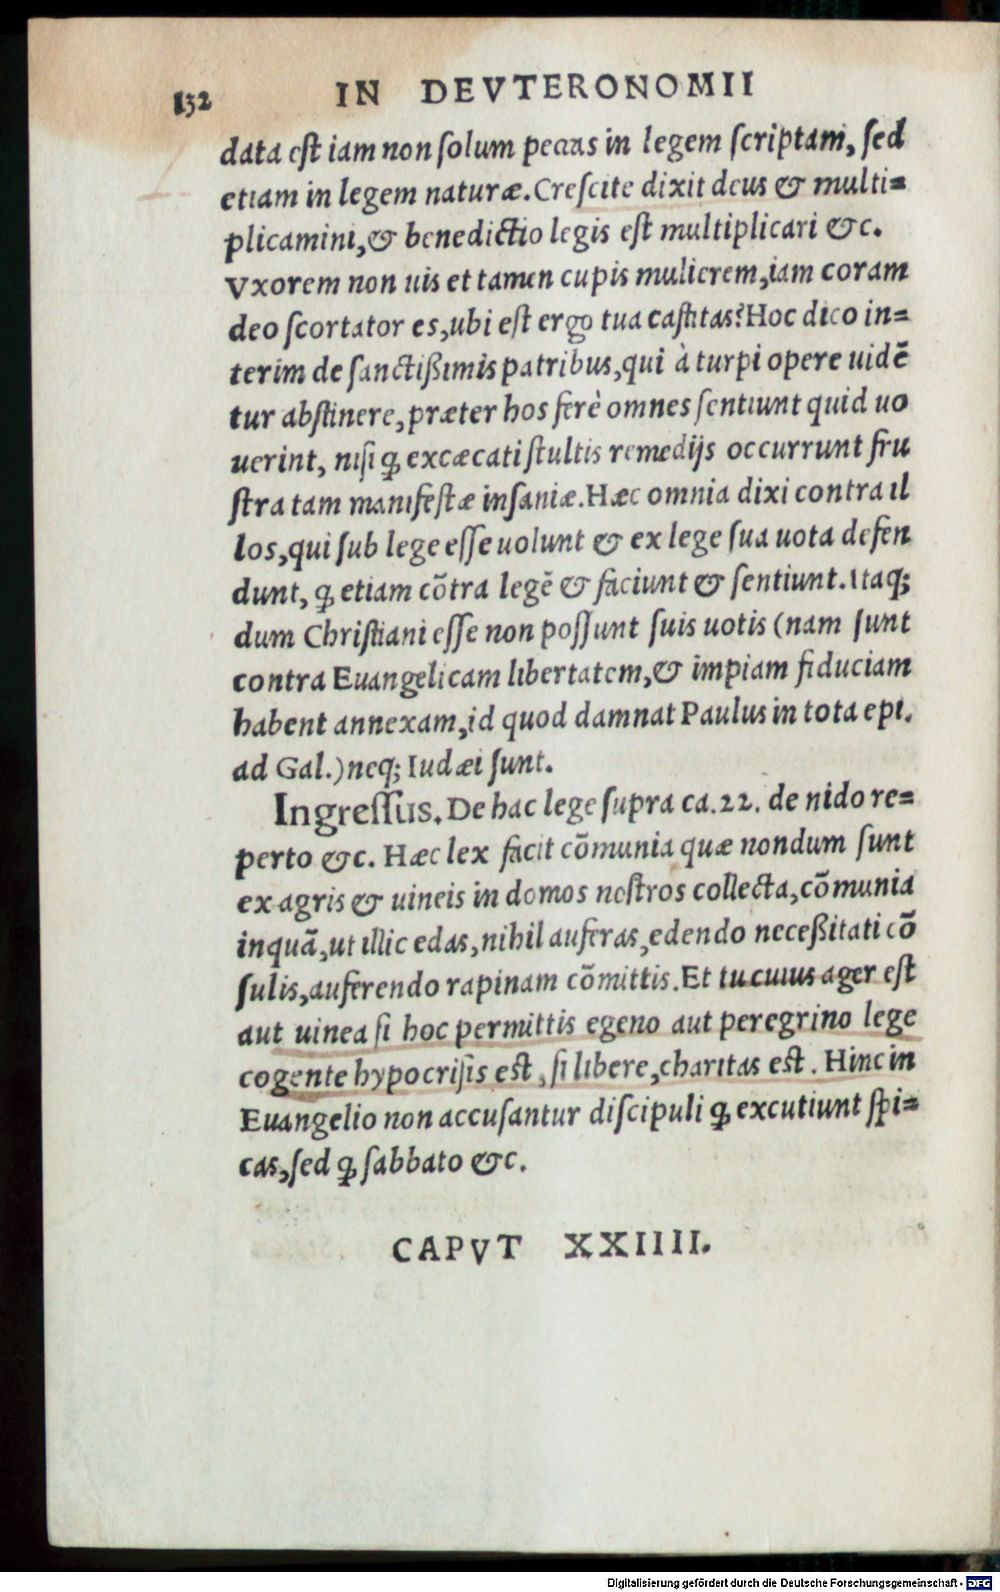 132 IN DEVTERONOMII
data eſt iam non ſolum peccas in legem ſcriptam, ſed
etiam in legem naturæ. Creſcite dixit deus & multi=
plicamini, & benedictio legis eſt multiplicari &c.
Vxorem non uis et tamen cupis mulierem, iam coram
deo ſcortator es, ubi eſt ergo tua caſtitas? Hoc dico in=
terim de ſanctißimis patribus, qui à turpi opere uidē
tur abſtinere, præter hos ferè omnes ſentiunt quid uo
uerint, niſi ꝙ excæcati ſtultis remedijs occurrunt fru
ſtra tam manifeſtæ inſaniæ. Hæc omnia dixi contra il
los, qui ſub lege eſſe uolunt & ex lege ſua uota defen
dunt, ꝙ etiam cōtra legē & faciunt & ſentiunt. Itaq;
dum Chriſtiani eſſe non poſſunt ſuis uotis (nam ſunt
contra Euangelicam libertatem, & impiam fiduciam
habent annexam, id quod damnat Paulus in tota epi.
ad Gal.) neq; Iudæi ſunt.
Ingreſſus. De hac lege ſupra ca. 22. de nido re=
perto &c. Hæc lex facit cōmunia quæ nondum ſunt
ex agris & uineis in domos noſtros collecta, cōmunia
inquā, ut illic edas, nihil auferas, edendo neceßitati cō
ſulis, auferendo rapinam cōmittis. Et tu cuius ager eſt
aut uinea ſi hoc permittis egeno aut peregrino lege
cogente hypocriſis eſt, ſi libere, charitas eſt. Hinc in
Euangelio non accuſantur diſcipuli ꝙ excutiunt ſpi=
cas, ſed ꝙ ſabbato &c.
CAPVT XXIIII.
Digitalisierung gefördert durch die Deutsche Forschungsgemeinschaft - DFG